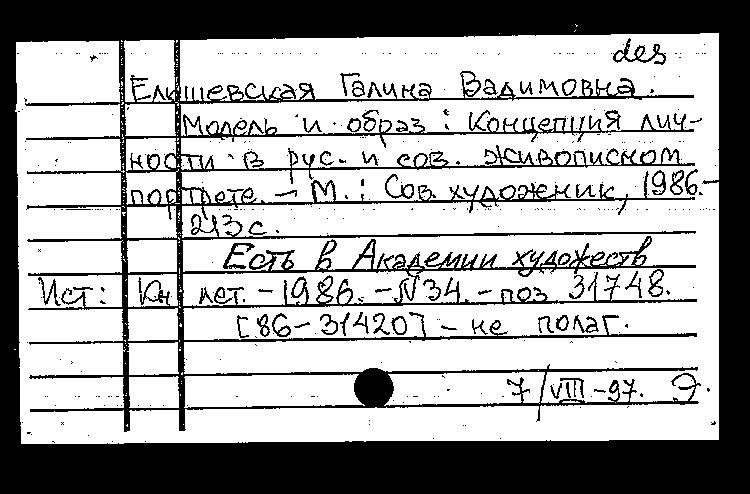 des
Елишевская Галина Вадимовна.
Модель и образ : Концепция лич-
ности в рус. и сов. живописном
портрете. – М. : Сов. художник, 1986. –
213 с.
Есть в Академии художеств
Ист: Кн лет. – 1986. – N34. – поз 31748.
[86–31420] – не полаг.
7/VIII –97. Э.